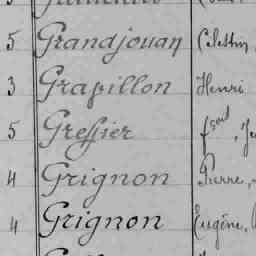 5 Grandjouan Célestin
3 Grapillon Henri
5 Greffier fçois, Je
4 Grignon Pierre,
4 Grignon Eugène,